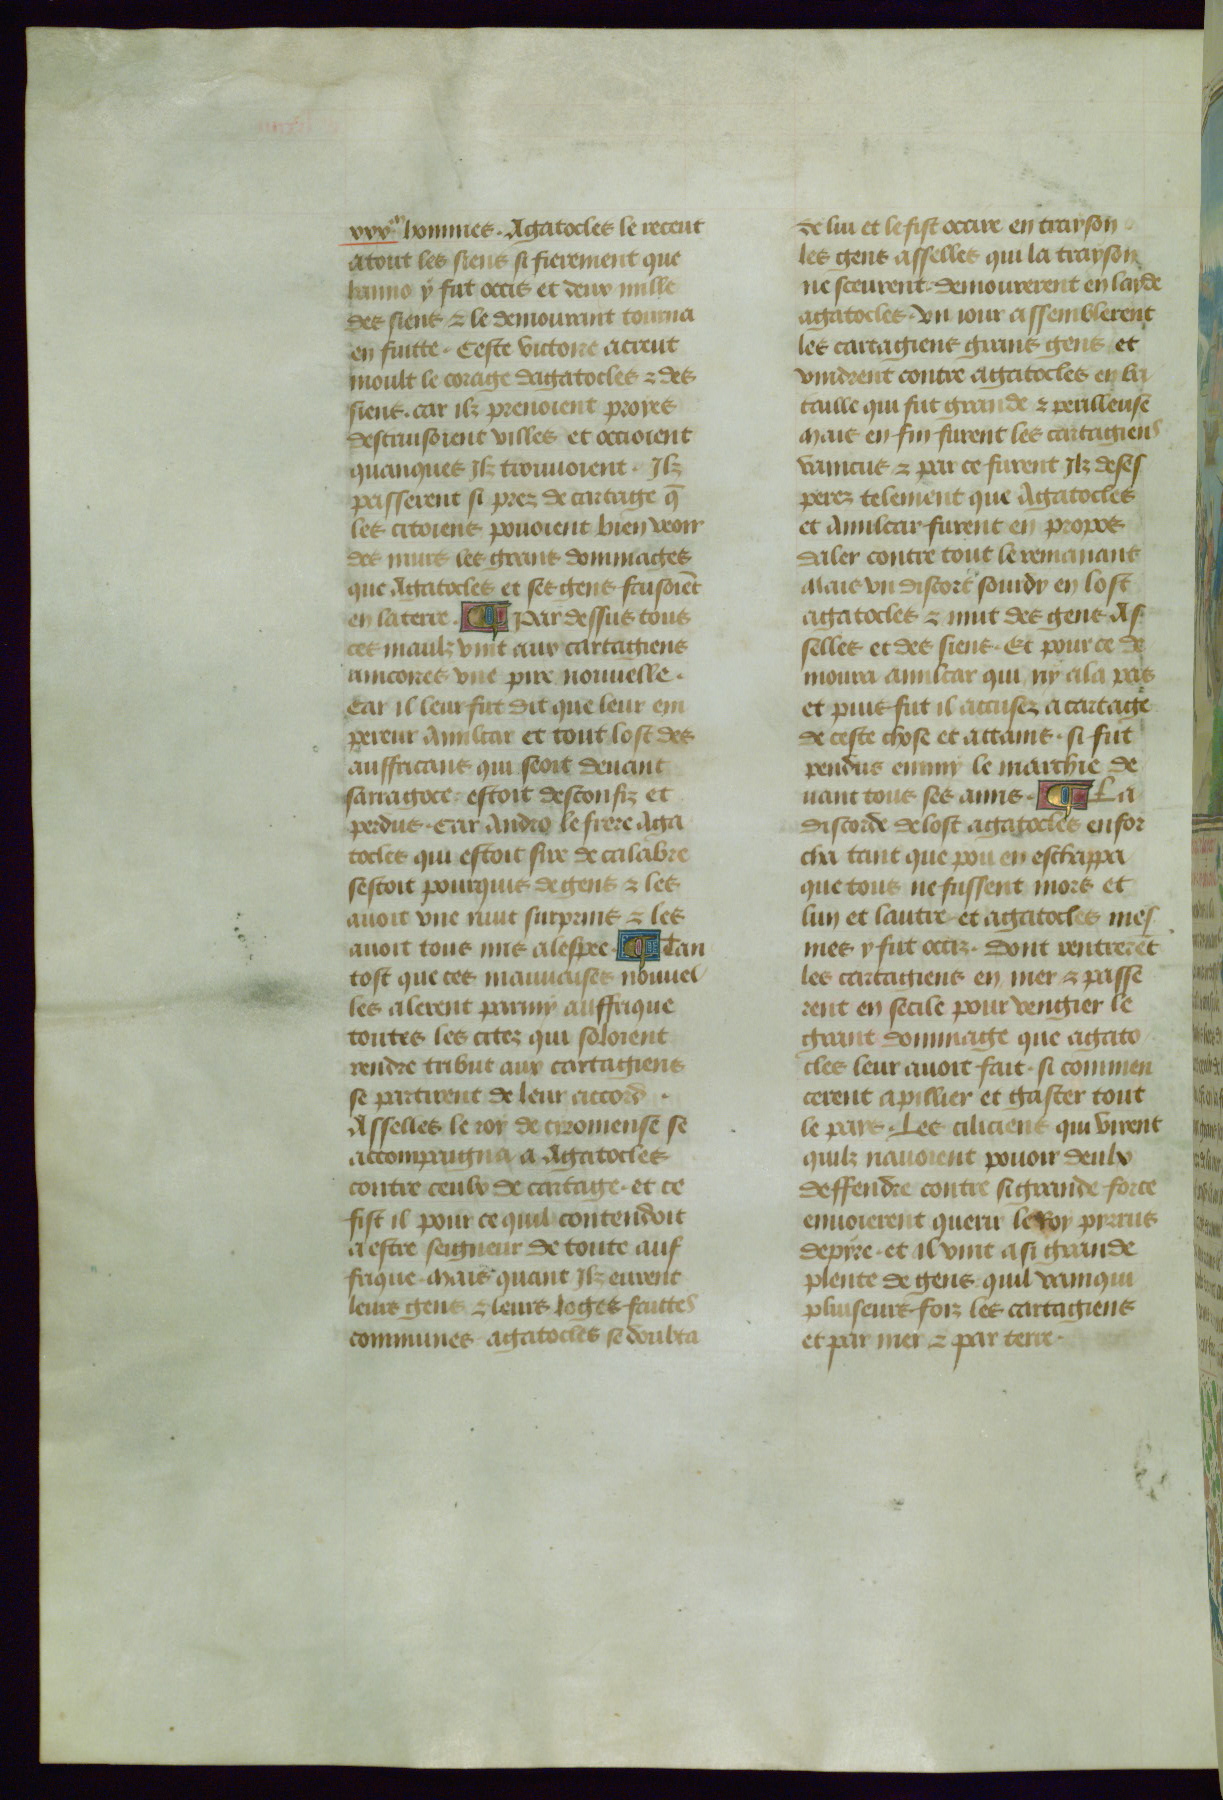 xxx^m hommes. Agatocles le receut
atout les siens si fierement que
hanno y fut occis et deux mille
des siens ⁊ le demourant tourna
en fuitte. Ceste victoire acreut
moult le corage dagatocles ⁊ des
siens. car ilz prenoient proyes
destruisoient villes et occioient
quanques Ilz trouuoient. Ilz
passerent si prez de cartage q̄
les citoiens pouoient bien veoir
des murs les grans dommages
que Agatocles et ses gens faisoiēt
en la terre. ¶ Par dessus tous
ces maulz vint aux cartagiens
ancores vne pire nouuelle.
Car il leur fut dit que leur em
pereur Amilcar et tout lost des
auffricans qui seoit deuant
sarragoce. estoit desconfiz et
perdus. Car Andro le frere Aga
tocles qui estoit sire de calabre
sestoit pourquis de gens ⁊ les
auoit vne nuit surprins ⁊ les
auoit tous mis a lespee. ¶ Tan
tost que ces mauuaises nouuel
les alerent parmy auffrique
toutes les citez qui soloient
rendre tribut aux cartagiens
se partirent de leur accord.
Asselles le roy de cyromense se
accompaigna a Agatocles
contre ceulx de cartage. et ce
fist il pour ce quil contendoit
a estre seigneur de toute auf
frique. Mais quant Ilz eurent
leurs gens ⁊ leurs loges faittes
communes. agatocles se doubta
de lui et le fist occire en trayson
les gens asselles qui la trayson
ne sceurent. demourerent en layde
agatocles. vn iour assemblerent
les cartagiens grans gens et
vindrent contre agatocles en ba
taille qui fut grande ⁊ perilleuse
Mais en fin furent les cartagiens
vaincus ⁊ par ce furent Ilz deses
perez telement que Agatocles
et Amilcar furent en propos
daler contre tout le remanant
Mais vn discort sourdy en lost
agatocles ⁊ mut des gens As
selles et des siens. Et pour ce de
moura amilcar qui ny ala pas
et puis fut il accusez a cartage
de ceste chose et attains. si fut
pendus enmy le marchie de
uant tous ses amis. ¶ La
discorde de lost agatocles enfor
cha tant que pou en eschappa
que tous ne fussent mors et
lun et lautre. et agatocles mes
mes y fut occiz. Dont rentrerēt
les cartagiens en mer ⁊ passe
rent en secile pour vengier le
grant dommage que agato
cles leur auoit fait. si commen
cerent a pillier et gaster tout
le pays. Les ciliciens qui virent
quilz nauoient pouoir deulx
deffendre contre si grande force
enuoierent querir le Roy pirrus
depyre. et il vint a si grande
plente de gens. quil vainqui
pluiseurs foiz les cartagiens
et par mer ⁊ par terre.